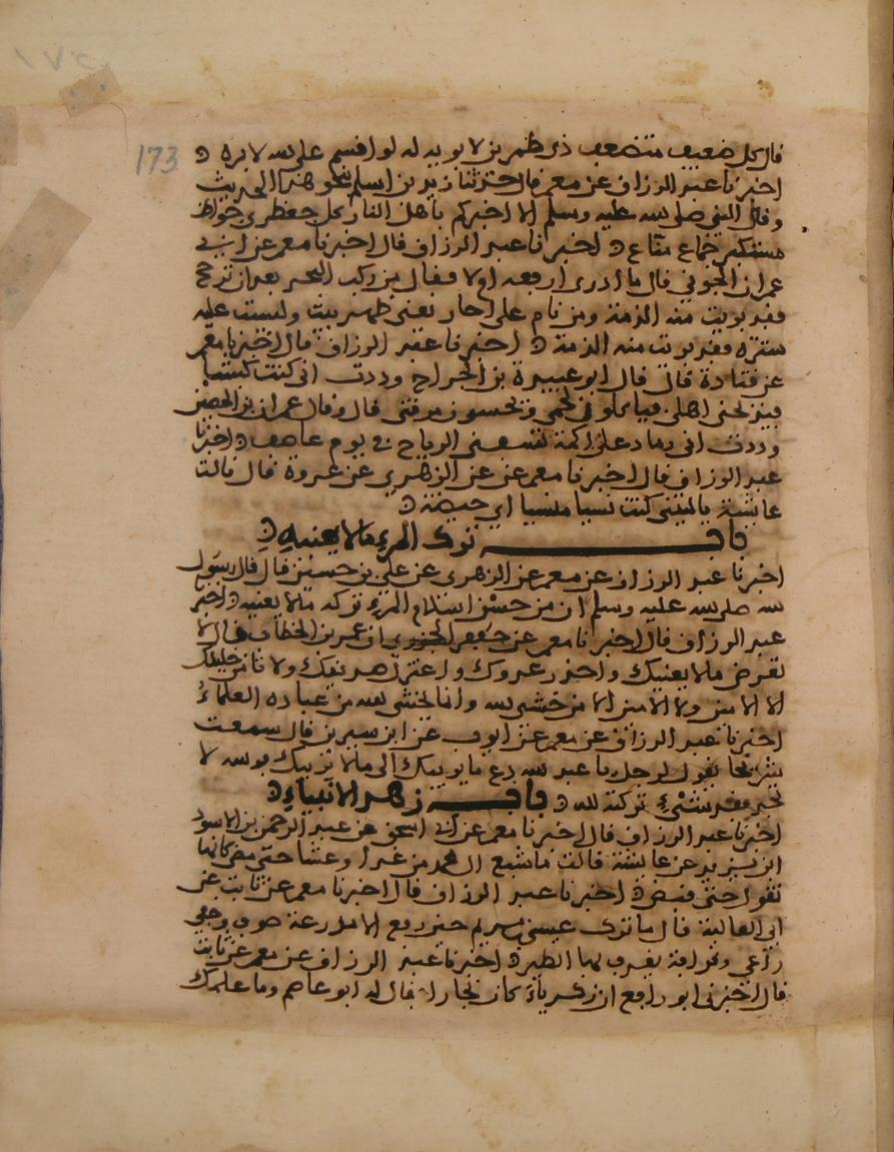 173
قال كل ضعيف متضعف ذي طمرين لا يوبه له لو اقسم على الله لابره
اخبرنا عبد الرزاق عن معمر قال حدثنا زيد بن اسلم نحو هذا الحديث
وقال النبي صلى الله عليه وسلم الا اخبركم باهل النار كل جعظري جواظ
مستكبر جماع مناع اخبرنا عبد الرزاق قال اخبرنا معمر عن ابي
عمران الجوني قال ما ادري ارفعه ام لا فقال من ركب البحر بعد ان ترتج
فقد بريت منه الذمة ومن نام على اجار يعني ظهر بيت وليست عليه
سترة فقد بريت منه الذمة اخبرنا عبد الرزاق قال اخبرنا معمر
عن قتادة قال قال ابو عبيدة بن الجراح وددت اني كنت كبشا
فيذبحني اهلي فياكلون لحمي ويحسون مرقتي قال وقال عمران بن الحصين
وددت اني رماد على اكمة تنسفني الرياح في يوم عاصف اخبرنا
عبد الرزاق قال اخبرنا معمر عن الزهري عن عروة قال قالت
عايشة يا ليتني كنت نسيا منسيا اي حيضة
باب ترك المرء ما لا يعنيه
اخبرنا عبد الرزاق عن معمر عن الزهري عن علي بن حسين قال قال رسول
الله صلى الله عليه وسلم ان من حسن اسلام المرء تركه ما لا يعنيه اخبرنا
عبد الرزاق قال اخبرنا معمر عن جعفر الجزري ان عمر بن الخطاب قال لا
تعرض ما لا يعنيك واحذر عدوك واعتزل صديقك ولا تامن خليلك
الا الامين ولا الامين الا من خشي الله وانما يخشى الله من عباده العلماء
اخبرنا عبد الرزاق عن معمر عن ايوب عن ابن سيرين قال سمعت
شريحا يقول لرجل يا عبد الله دع ما يريبك الى ما لا يريبك فوالله لا
تجد فقد شيء تركته لله باب زهد الانبياء
اخبرنا عبد الرزاق قال اخبرنا معمر عن ابي اسحق عن عبد الرحمن بن الاسود
ابن يزيد عن عايشة قالت ما شبع ال محمد من غداء وعشاء حتى مضى كانها
تقول حتى قبض اخبرنا عبد الرزاق قال اخبرنا معمر عن ثابت عن
ابي العالية قال ما ترك عيسى بن مريم حين رفع الا مدرعة صوف وخفي
راعي وقذافة يقذف بها الطير اخبرنا عبد الرزاق عن معمر عن ثابت
قال اخبرني ابو رافع ان زكرياء كان نجارا فقال له ابو عاصم وما علمك